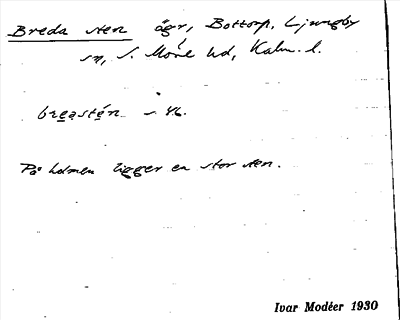 Breda sten ägr, Bottorp, Ljungby
sn, S. Möre hd, Kalm. l.
breastén
På holmen ligger en stor sten.
Ivar Modéer 1930